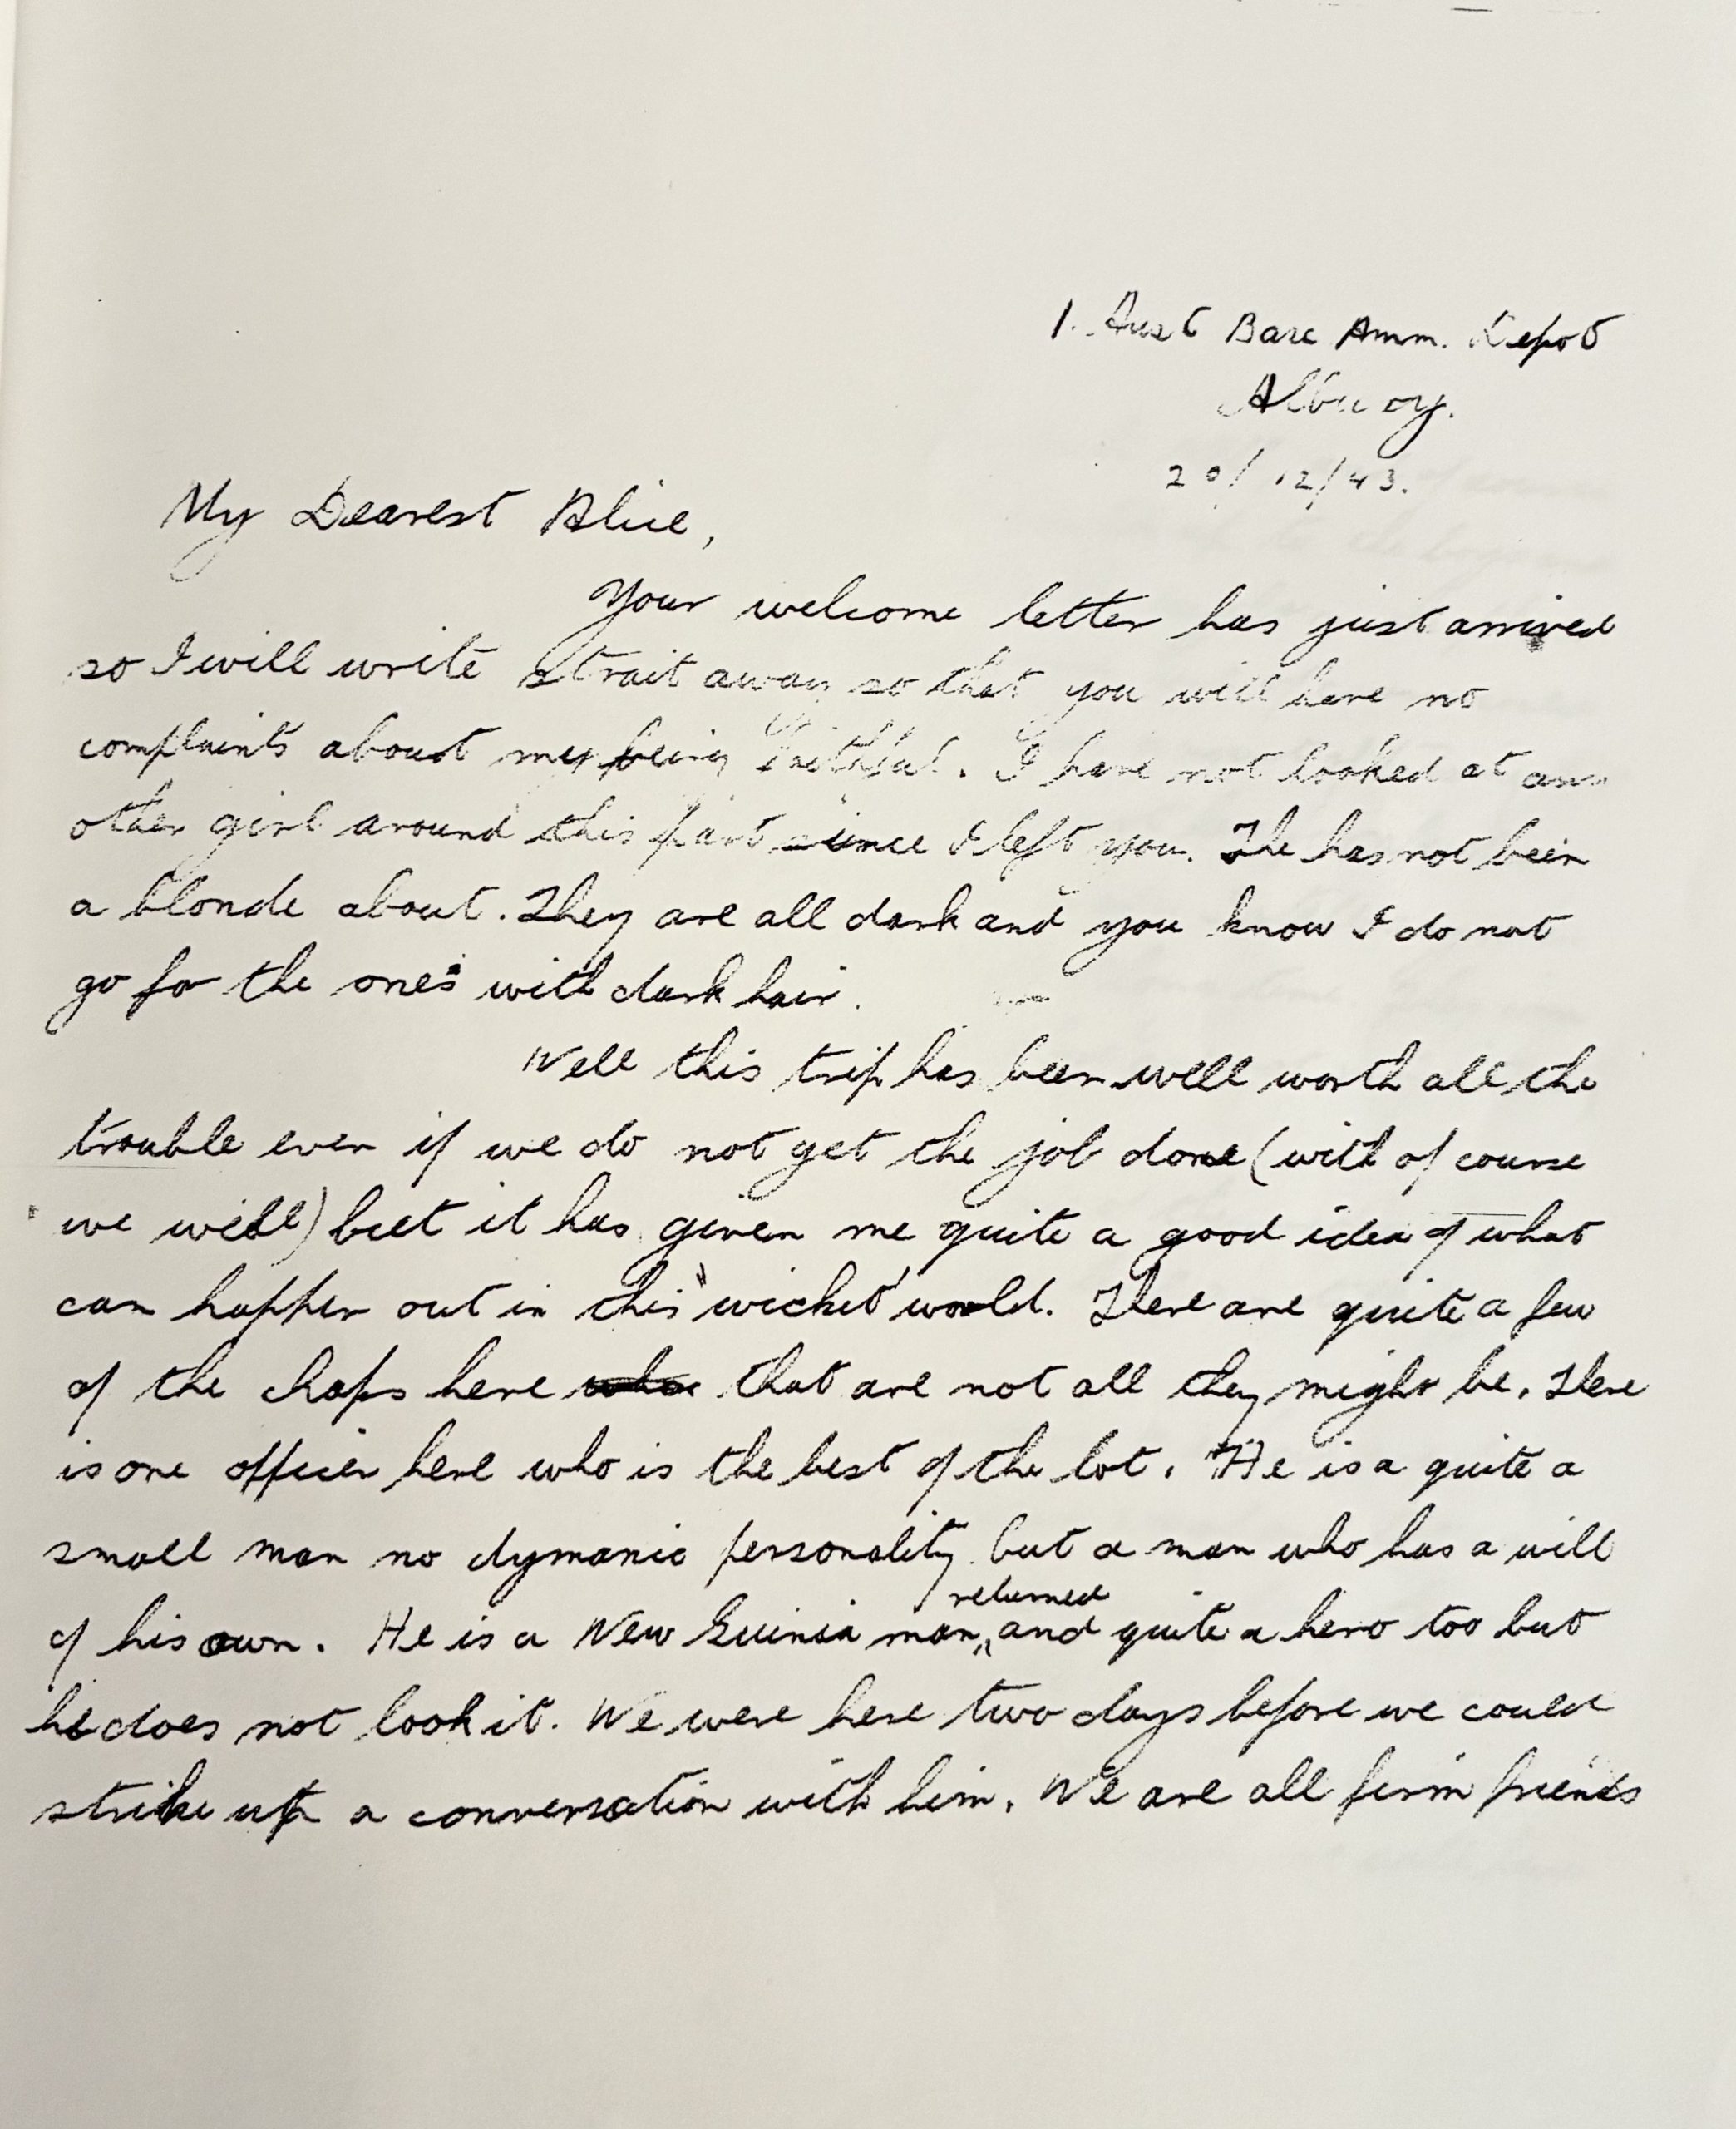 1. Aust Base Amm. Depot
Albury.
20/12/43.
My Dearest Alice,
Your welcome letter has just arrived
so I will write strait away so that you will have no
complaints about my being faithful. I have not looked at an
other girl around this part since I left you. The has not been
a blonde about. They are all dark and you know I do not
go for the one's with dark hair.
Well this trip has been well worth all the
trouble even if we do not get the job done (witt of course
we will) but it has given me quite a good idea of what
can happen out in this "wicket" world. There are quite a few
of the chaps here that are not all they might be. There
is one officer here who is the best of the lot. He is a quite a
small man no dymanic personality but a man who has a will
returned
of his own. He is a New Guinia man, and quite a hero too but
he does not look it. We were here two days before we could
strike up a conversation with him. We are all firm friends